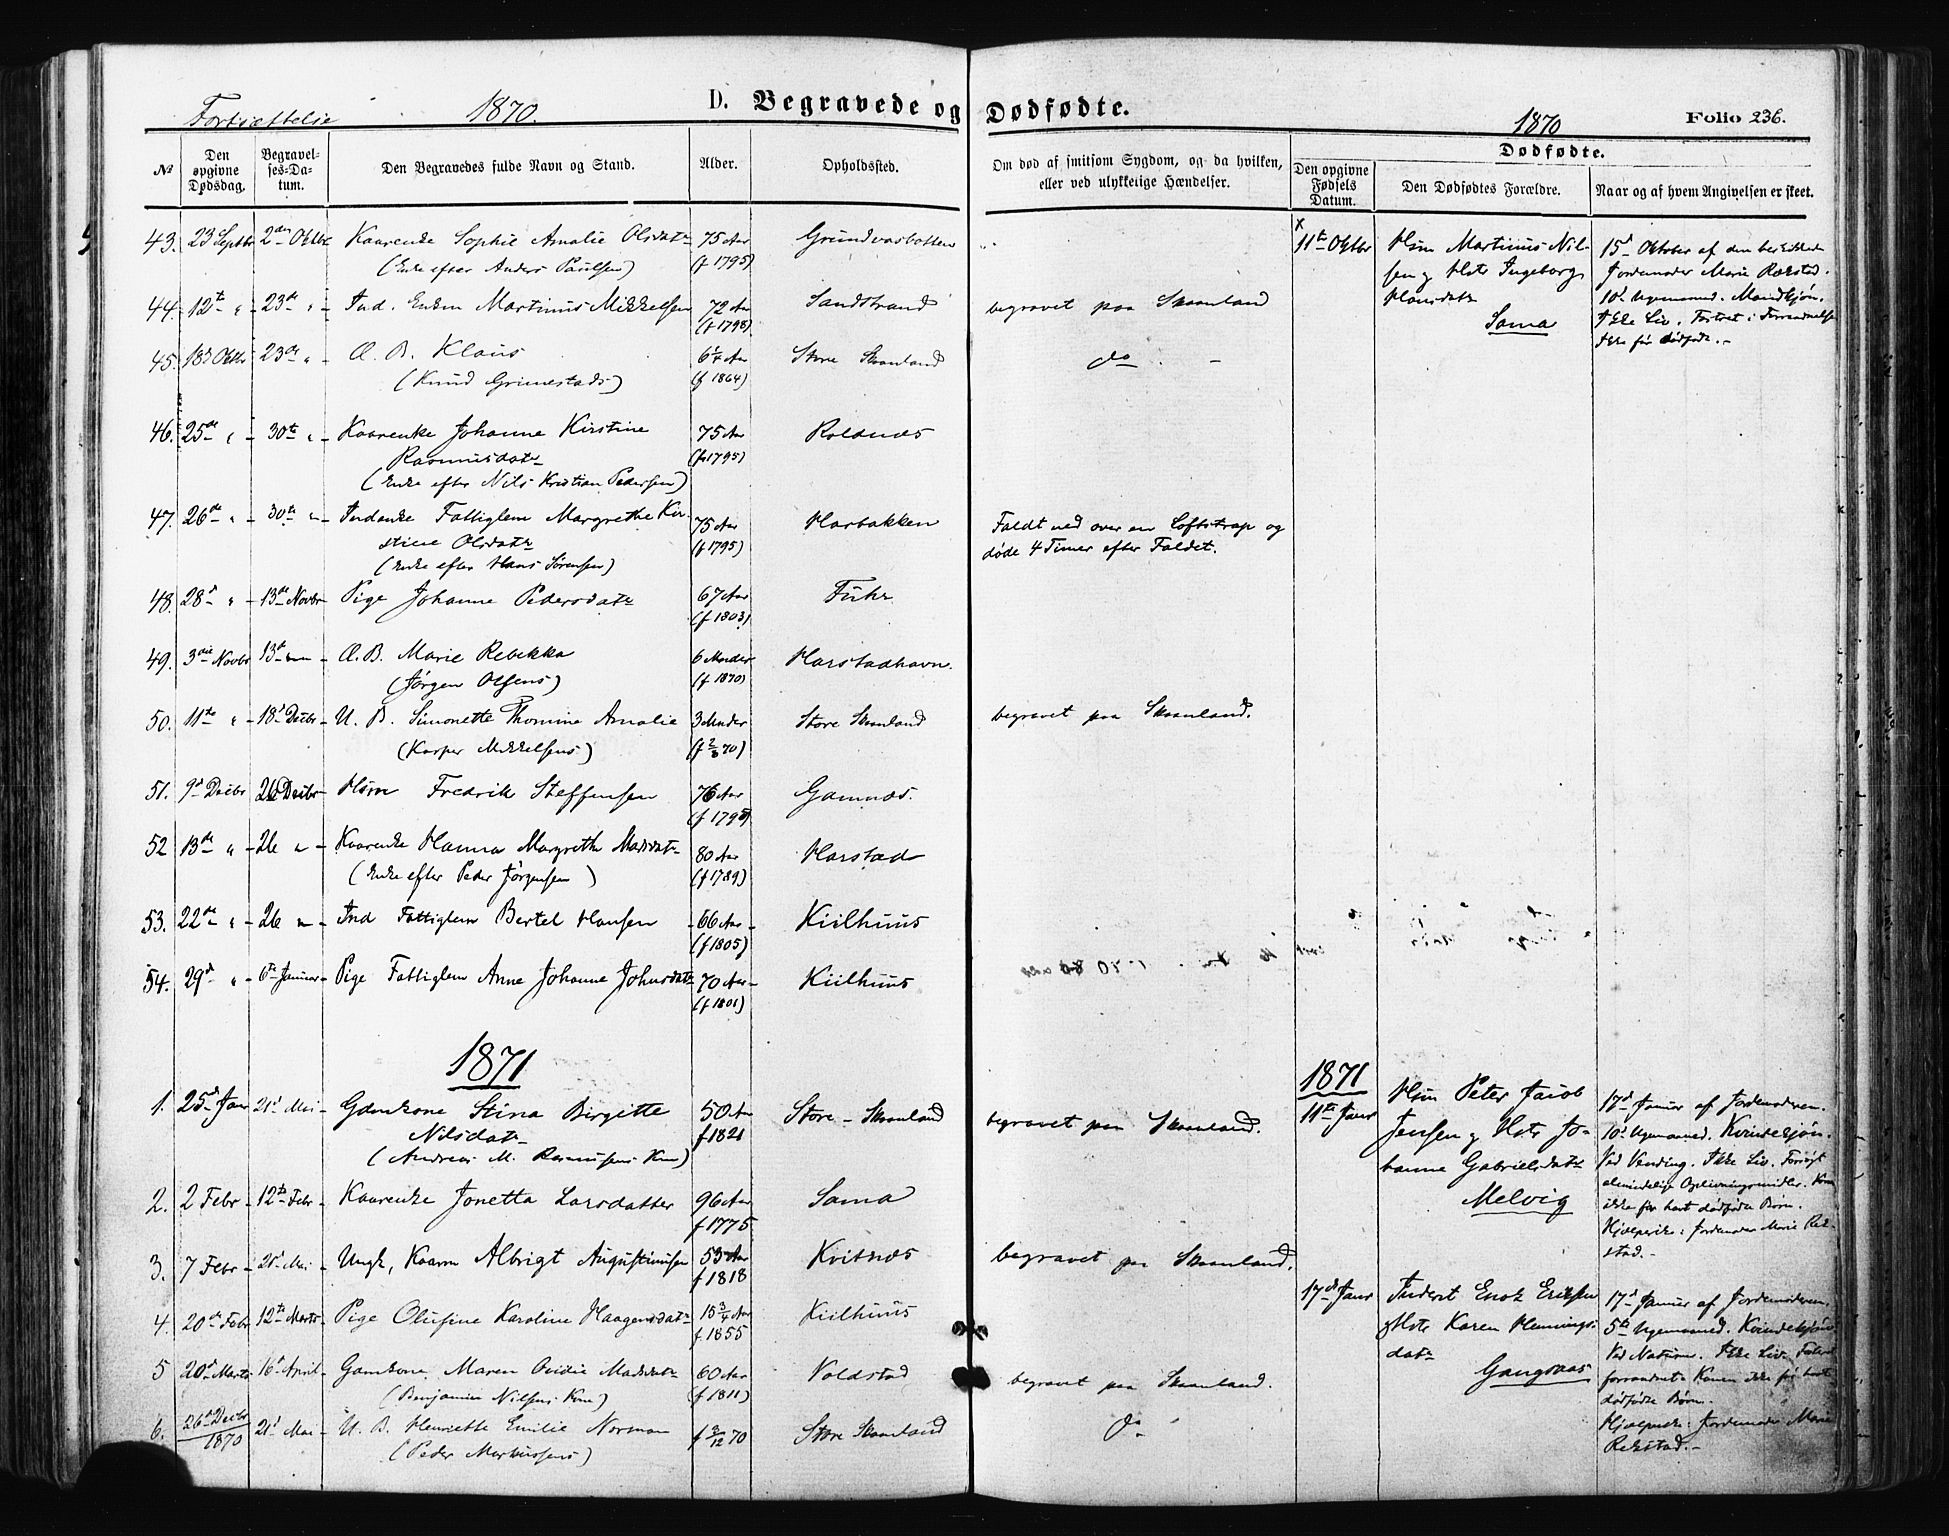 Fortsættelse 1870. D. Begravede og Dødfødte. 1870 Folio 236.
№ Den opgivne Dødsdag. Begravelses-Datum. Den Begravedes fulde Navn og Stand. Alder. Opholdssted. Om død af smitsom Sygdom, og da hvilken, eller ved ulykkelige Hændelser. Dødfødte.
Den opgivne Fødsels Datum. Den Dødfødtes Forældre. Naar og af hvem Angivelsen er skeet.
43. 23 Septbr 2den Oktbr Kaarenke Sophie Amalie Olsdatr 75 Aar Grundvasbotten
(Enke efter Anders Paulsen) (f 1795)
44. 12te " 23de " Ind. Enkm Martinus Mikkelsen 72 Aar Sandstrand begravet paa Skaanland
(f 1798)
45. 18d Oktbr 23de " Æ. B. Klaus 6¼ Aar Store Skaanland do
(Knud Grimestads) (f 1864)
46. 25de " 30te " Kaarenke Johanne Kirstine 75 Aar Roldnæs
Rasmusdatr (f 1795)
(Enke efter Nils Kristian Pedersen)
47. 26de " 30te " Indenke Fattiglem Margrethe Kir- 75 Aar Harbakken Faldt ned over en Loftstrap og
stine Olsdatr (f 1795) døde 4 Timer efter Faldet.
(Enke efter Hans Sørensen)
48 28d " 13de Novbr Pige Johanne Pedersdatr 67 Aar Fuhr
(f 1803)
49. 3die Novbr 13de Æ. B. Marie Rebekka 6 Maader Harstadhavn.
(Jørgen Olsens) (f 1870)
50. 11te " 18d Decbr U. B. Simonette Thomine Amalie 3 Maader Store Skaanland begravet paa Skaanland.
(Kasper Mikkelsens) (f 2/8 70)
51. 9d Decbr 26 Decbr Hsm Fredrik Steffensen 76 Aar Gamnæs.
52 13de " 26 " Kaarenke Hanna Margrethe Madsdatr 80 Aar Harstad
(Enke efter Peder Jørgensen) (f 1789)
53. 22de " 26 " Ind Fattiglem Bertel Hansen 66 Aar Kiilhuus
(f 1805)
54. 29d " 6te Januar Pige Fattiglem Anne Johanne Johnsdatr 70 Aar Kiilhuus
(f 1801)
1871
1. 25d Jan 21d Mai Gaardkone Stina Birgitte 50 Aar Store-Skaanland begravet paa Skaanland.
Nilsdatr f 1821
(Andreas M. Rasmusens Kone)
2. 2 Febr 12te Febr Kaarenke Jonetta Larsdatter 96 Aar Sama
f 1775
3. 7 Febr 21d Mai Ungk, Kaarm Albrigt Augustinusen 53 Aar Kvitnæs begravet paa Skaanland.
f 1818
4. 20de Febr 12te Marts Pige Olufine Karoline Haagensdatr 15¾ Aar Kiilhuus
f 1855
5 20de Marts 16d April Gaardkone Maren Ovidie Madsdatr 60 Aar Voldstad begravet paa Skaanland.
(Benjamin Nilsens Kone) (f 1811)
6. 26de Decbr 1870 21d Mai U. B. Henriette Emilie Norman f 2/12 70 Store Skaanland do
(Peder Markussens)
x
11te Oktbr Hsm Martinus Nil-
sen og Hstr Ingeborg
Hansdatr
Sama
15d Oktober af den beskikkede
Jordemoder Marie Rekstad.
10d Ugemaaned. Mandkjøn.
Ikke Liv. Fostret i Forraadnelse
Ikke før dødfødt.
1871
11te Janr Hsm Peter Jacob
Jensen og Hstr Jo-
hanne Gabrielsdatr
Melvig
17d Januar af Jordemoderen.
10d Ugemaaned. Kvindekjøn.
Ved Vending. Ikke Liv. Forsøgt
almindelige Oplivningsmidler. Kone
ikke før havt dødfødte Børn.
Hjælperske: Jordemoder Marie Rek-
stad.
17d Janr Inderst Enok Eriksen
og Hstr Karen Hennings-
datr
Gangsaas
17d Januar af Jordemoderen.
5te Ugemaaned. Kvindekjøn
Ved Naturen. Ikke Liv. Fostret
forraadnet. Konen ikke før havt
dødfødte Børn.
Hjælperske: Jordemoder Marie
Rekstad.